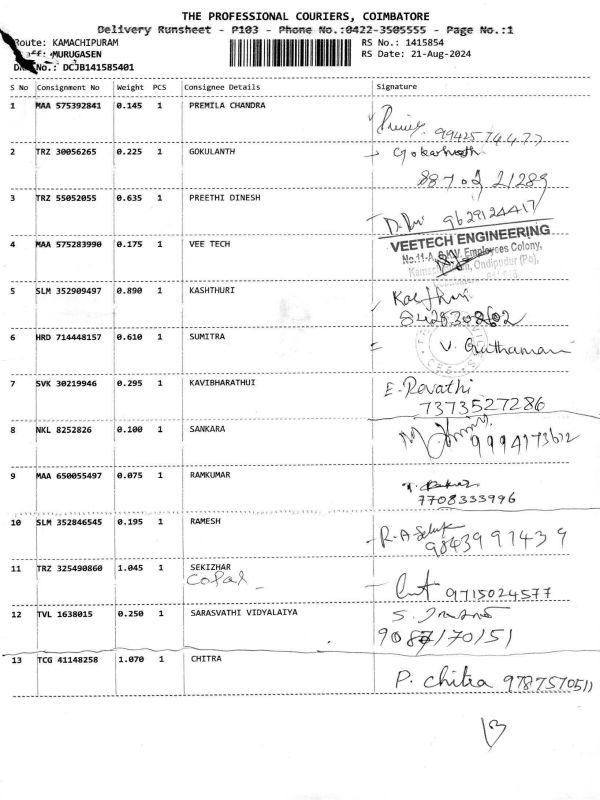 THE PROFESSIONAL COURIERS, COIMBATORE
Delivery Runsheet - P103 - Phone No.:0422-3505555 - Page No.:1
Route: KAMACHIPURAM
RS No.: 1415854
MURUGASEN
RS Date: 21-Aug-2024
No.: DCJB141585401
S No Consignment No Weight PCS Consignee Details Signature
1 MAA 575392841 0.145 1 PREMILA CHANDRA
2 TRZ 30056265 0.225 1 GOKULANTH
3 TRZ 55052055 0.635 1 PREETHI DINESH
9629124417
4 MAA 575283990 0.175 1 VEE TECH
VEETECH ENGINEERING
No.11-A, Employees Colony,
Ondipudur (Po),
5 SLM 352909497 0.890 1 KASHTHURI
Kasthuri
8428308602
6 HRD 714448157 0.610 1 SUMITRA
7 SVK 30219946 0.295 1 KAVIBHARATHUI
E. Revathi
7373527286
8 NKL 8252826 0.100 1 SANKARA
9 MAA 650055497 0.075 1 RAMKUMAR
7708333996
10 SLM 352846545 0.195 1 RAMESH
11 TRZ 325490860 1.045 1 SEKIZHAR
9715024577
12 TVL 1638015 0.250 1 SARASVATHI VIDYALAIYA
13 TCG 41148258 1.070 1 CHITRA
P. chitra 9787570511
13